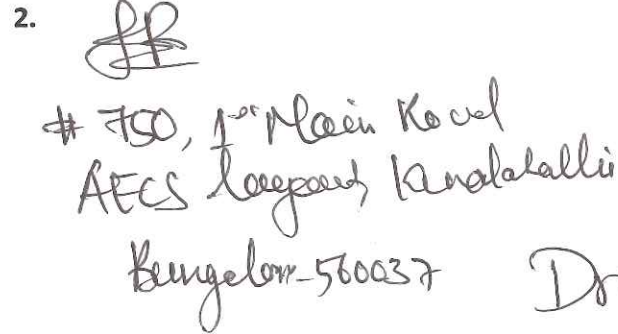 2.
# 750, 1st Main Road
AECS Layout, Kundalahalli
Bangalore-560037
Dr